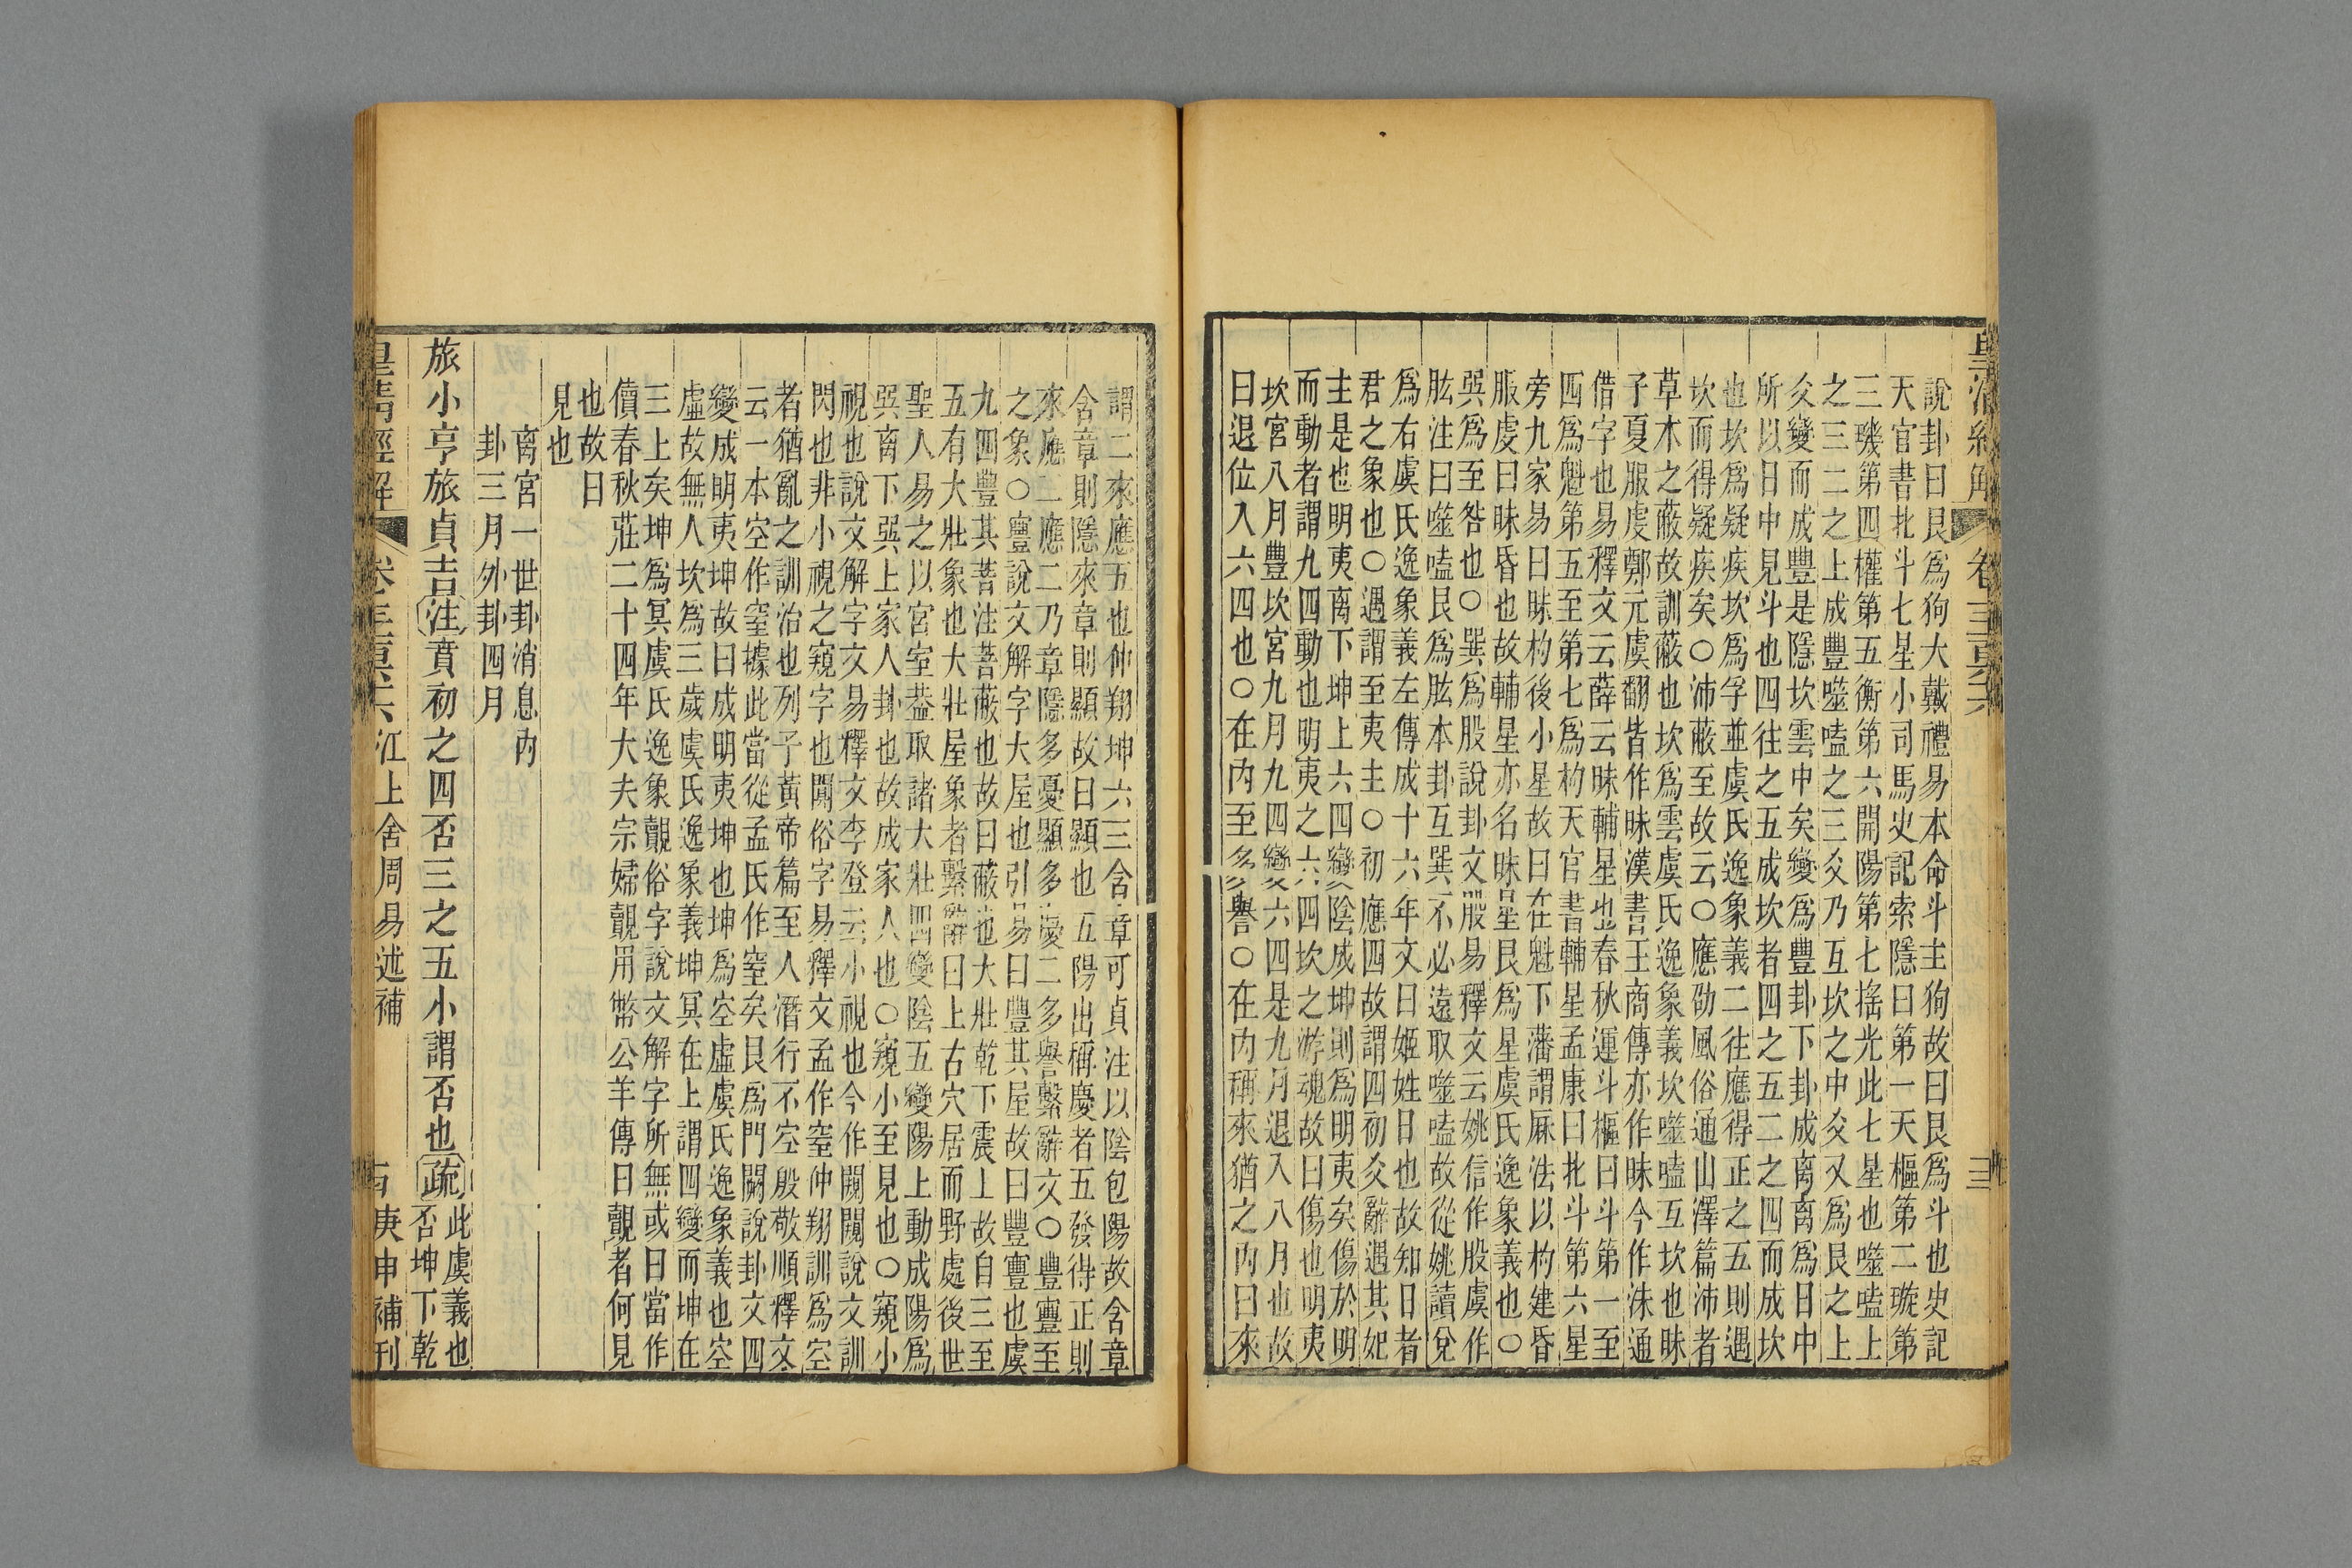 說卦曰艮爲狗大戴禮易本命斗主狗故曰艮爲斗也史記
天官書北斗七星小司馬史記索隱曰第一天樞第二璇第
三璣第四權第五衡第六開陽第七搖光此七星也噬嗑上
之三二之上成豐噬嗑之三爻乃互坎之中爻又爲艮之上
爻變而成豐是隱坎雲中矣變爲豐卦下卦成离离爲日中
所以日中見斗也四往之五成坎者四之五二之四而成坎
也坎爲疑疾坎爲孚並虞氏逸象義二往應得正之五則遇
坎而得疑疾矣○沛蔽至故云○應劭風俗通山澤篇沛者
草木之蔽故訓蔽也坎爲雲虞氏逸象義坎噬嗑互坎也昧
子夏服虔鄭元虞翻皆作昧漢書王商傳亦作昧今作沬通
借字也易釋文云薛云昧輔星也春秋運斗樞曰斗第一至
四爲魁第五至第七爲杓天官書輔星孟康曰北斗第六星
旁九家易曰昧杓後小星故曰在魁下藩謂厤法以杓建昏
服虔曰昧昏也故輔星亦名昧星艮爲星虞氏逸象義也○
巽爲至咎也○巽爲股說卦文股易釋文云姚信作股虞作
肱注曰噬嗑艮爲肱本卦互巽不必遠取噬嗑故從姚讀兌
爲右虞氏逸象義左傳成十六年文曰姬姓日也故知日者
君之象也○遇謂至夷主○初應四故謂四初爻辭遇其妃
主是也明夷离下坤上六四變陰成坤則爲明夷矣傷於明
而動者謂九四動也明夷之六四坎之游魂故曰傷也明夷
坎宮八月豐坎宮九月九四變六四是九月退入八月也故
曰退位入六四也○在內至多譽○在內稱來猶之內曰來
謂二來應五也仲翔坤六三含章可貞注以陰包陽故含章
含章則隱來章則顯故曰顯也五陽出稱慶者五發得正則
來應二應二乃章隱多憂顯多慶二多譽繫辭文○豐寷至
之象○寷說文解字大屋也引易曰豐其屋故曰豐寷也虞
九四豐其菩注菩蔽也故曰蔽也大壯乾下震上故自三至
五有大壯象也大壯屋象者繫辭曰上古穴居而野處後世
聖人易之以宮室葢取諸大壯四變陰五變陽上動成陽爲
巽离下巽上家人卦也故成家人也○窺小至見也○窺小
視也說文解字文易釋文李登云小視也今作闚闚說文訓
閃也非小視之窺字也闃俗字易釋文孟作窒仲翔訓爲空
者猶亂之訓治也列子黃帝篇至人潛行不空殷敬順釋文
云一本空作窒據此當從孟氏作窒矣艮爲門闕說卦文四
變成明夷坤故曰成明夷坤也坤爲空虛虞氏逸象義也空
虛故無人坎爲三歲虞氏逸象義坤冥在上謂四變而坤在
三上矣坤爲冥虞氏逸象覿俗字說文解字所無或曰當作
儥春秋莊二十四年大夫宗婦覿用幣公羊傳曰覿者何見
也故曰
見也
离宮一世卦消息內
卦三月外卦四月
旅小亨旅貞吉注賁初之四否三之五小謂否也疏此虞義也
否坤下乾
皇清經解 卷 江上舍周易述補 庚申補刊